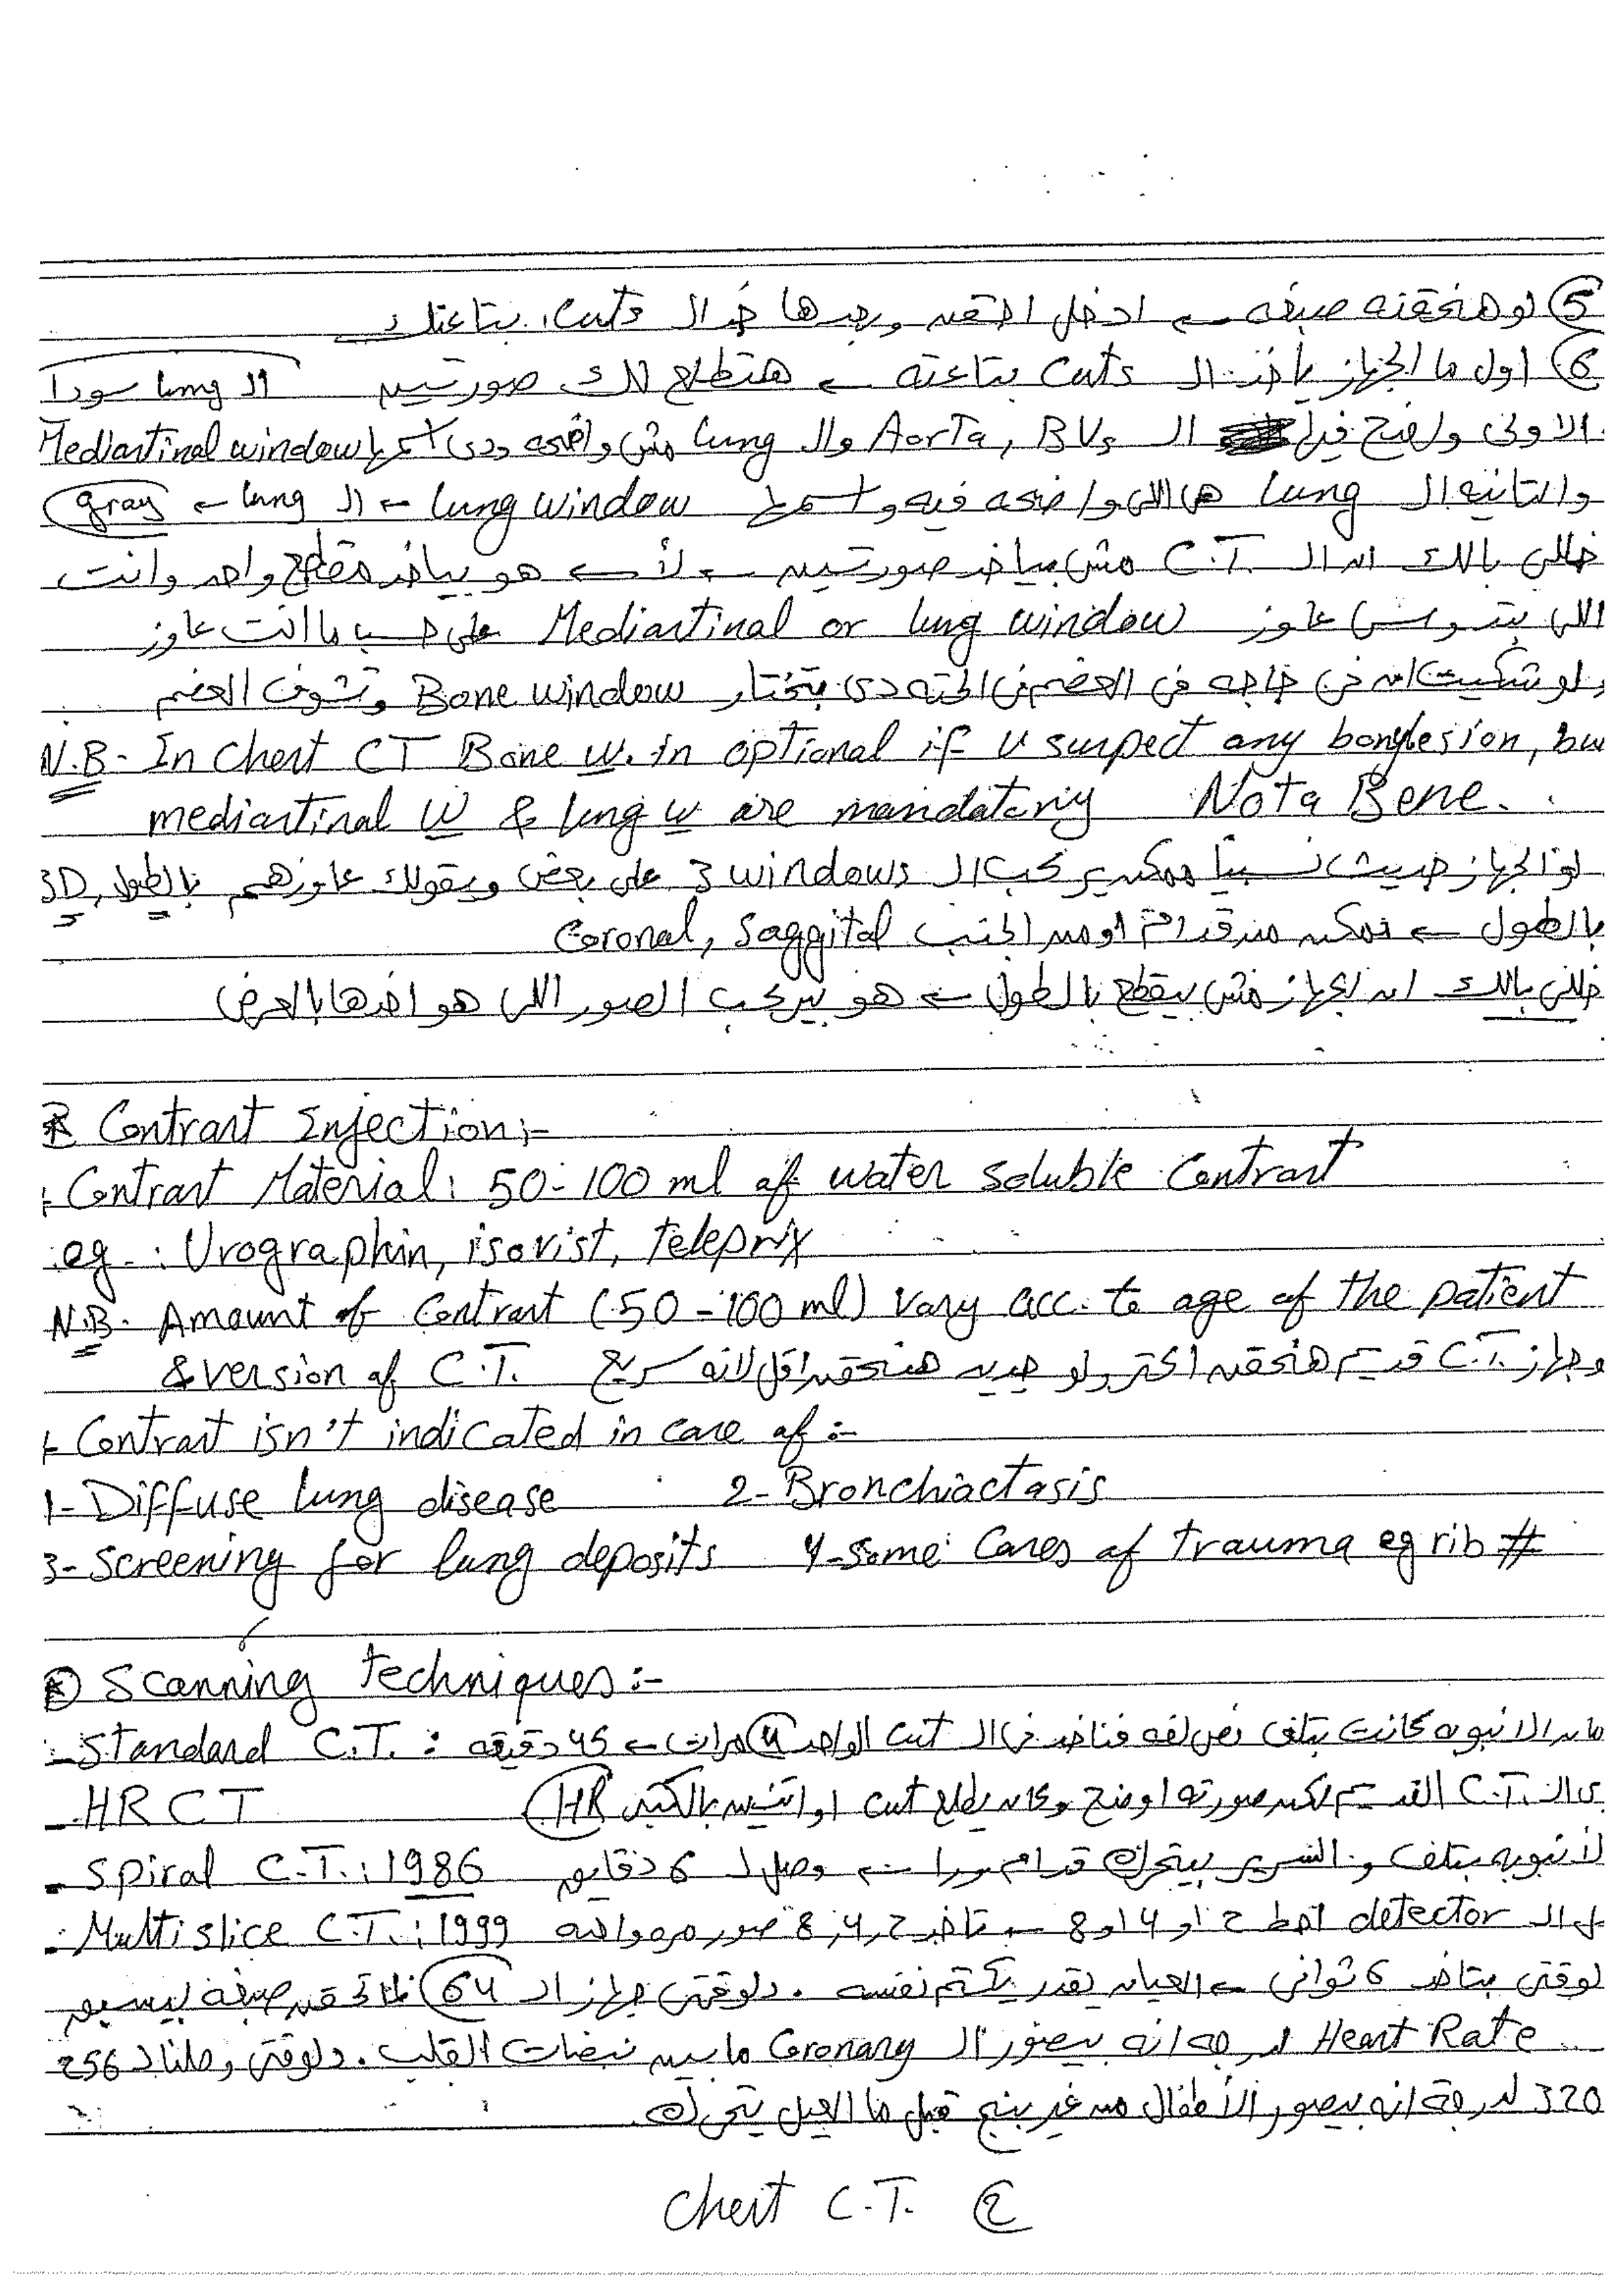 ⑤ لو هنحقنه صبغه ← ادخل احقنه وبعدها خد الـ Cuts بتاعتك
⑥ اول ما الجهاز ياخد الـ Cuts بتاعته ← هتطلع لك صورتين الـ lung سودا
الاولى واضح فيها الـ Aorta, BVs والـ lung مش واضحه ودى اسمها Mediastinal window
والتانيه الـ lung هى اللى واضحه فيه واسمها lung window ← الـ lung ← gray
خللى بالك ان الـ C.T. مش بياخد صورتين ← لأ ← هو بياخد مقطع واحد وانت
اللى بتدوس عاوز Mediastinal or lung window على حسب ما انت عاوز
ولو شكيت ان فى حاجه فى العضم فى الحته دى بتختار Bone window وتشوف العضم
N.B- In Chest CT Bone w. is optional if u suspect any bony lesion, bu
mediastinal w & lung w are mandatory Nota Bene.
لو الجهاز حديث نسبياً ممكن يركب الـ 3 windows على بعض ويقولك عاوزهم بالطول, 3D
بالطول ← ممكن من قدام او من الجنب Coronal, Saggital
خللى بالك ان الجهاز مش بيقطع بالطول ← هو بيركب الصور اللى هو اخدها بالعرض
* Contrast Injection:-
- Contrast Material: 50-100 ml of water soluble Contrast
eg.: Urographin, isovist, teleprix
N.B- Amount of Contrast (50-100 ml) vary acc. to age of the patient
& version of C.T. وجهاز C.T. قديم هنحقن اكتر ولو جديد هنحقن اقل لانه سريع
- Contrast isn't indicated in case of:-
1- Diffuse lung disease 2- Bronchiactasis
3- Screening for lung deposits 4- Some Cases of trauma eg rib #
* Scanning techniques:-
- Standard C.T.: الانبوبه كانت بتلف نص لفه فتاخد فى الـ cut الواحد 4 مرات ← 45 دقيقه
- HRCT الـ C.T. القديم لكن صورته اوضح وكان يطلع cut او اتنين بالكتير HR
- Spiral C.T.: 1986 لانبوبه بتلف والسرير بيتحرك قدام وورا ← وصل لـ 6 دقايق
- Multislice C.T.: 1999 الـ detector احط 2 او 4 او 8 ← تاخد 2, 4, 8 صور مره واحده
لوقتى بتاخد 6 ثوانى ← العيان يقدر يكتم نفسه . دلوقتى جهاز الـ 64 صبغه
Heart Rate لدرجة انه بيصور الـ Coronary ما بين نبضات القلب . دلوقتى وصلنا لـ 256
320 لدرجة انه بيصور الأطفال من غير بنج قبل ما العيل يتحرك
Chest C.T. ②